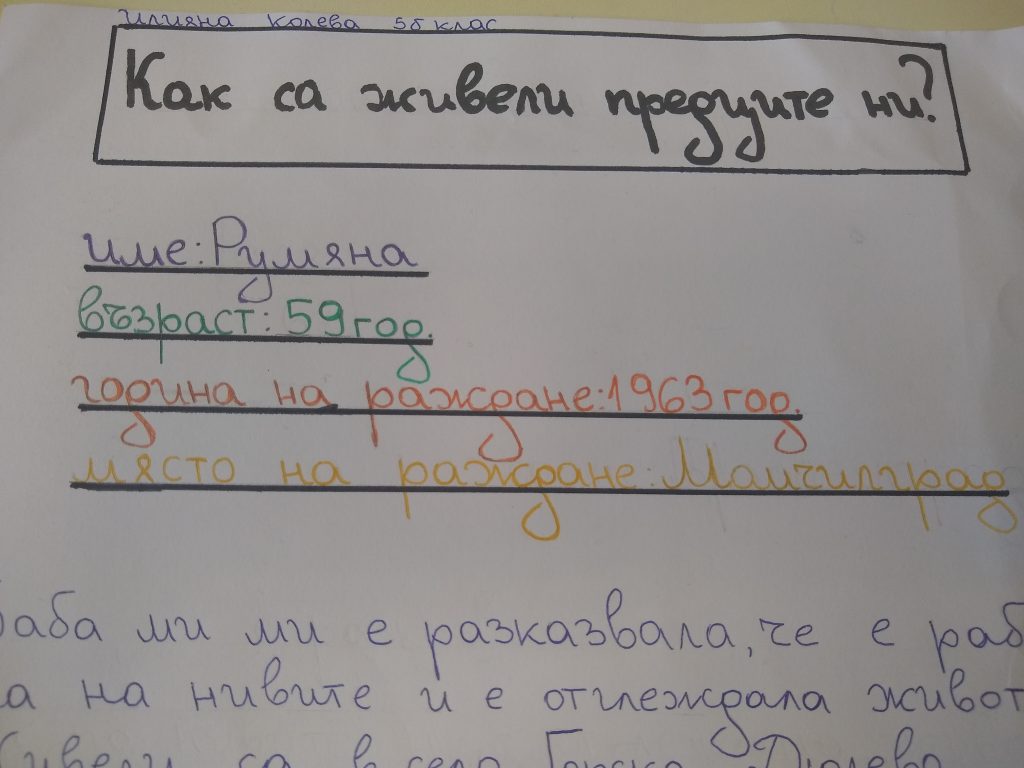 Илияна Колева 5б клас
Как са живели предците ни?
име: Румяна
възраст: 59 год.
година на раждане: 1963 год.
място на раждане: Момчилград
баба ми ми е разказвала, че е раб
а на нивите и е отглеждала живот
живели са в село Горско Дюлево